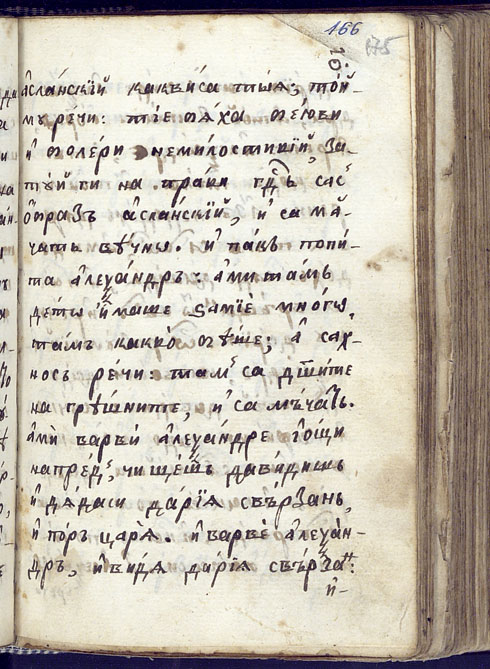 166
175
а҆сла́нскїй каквѝса тыѧ; то́й-
му речи: ті́е ѡѧ́ха
и҆ немилостивїй, за-
ту́й ги на пра́ви гд҇ь сас̾
ѻ҆́бразъ а҆сла́нскїй, и҆ са мѫ́-
чатъ вѣ́чнѡ. и҆ па́къ попи́-
та а҆леѯа́ндръ: а҆ми та́мь
де́тѡ и҆́маше ѕамїѐ мно́гѡ,
та́мъ какво̀ бѣ́ше; а҆ сах-
носъ ре́чи: там̾ са дш҃и́те
на грѣ́шните, и҆ са мѫ́чатъ.
а҆мѝ варвѝ а҆леѯа́ндре ѡ҆́щи
напре́д̾, чи ще́шъ да ви́дишь
и҆ дѧ́да си да́рїѧ свѣ́рзань,
и҆ по́ръ ца́рѧ. и҆ варвѐ а҆леѯа́н-
дръ, и҆ ви́дѧ да́рїѧ свѣ́рзан:
и҆-